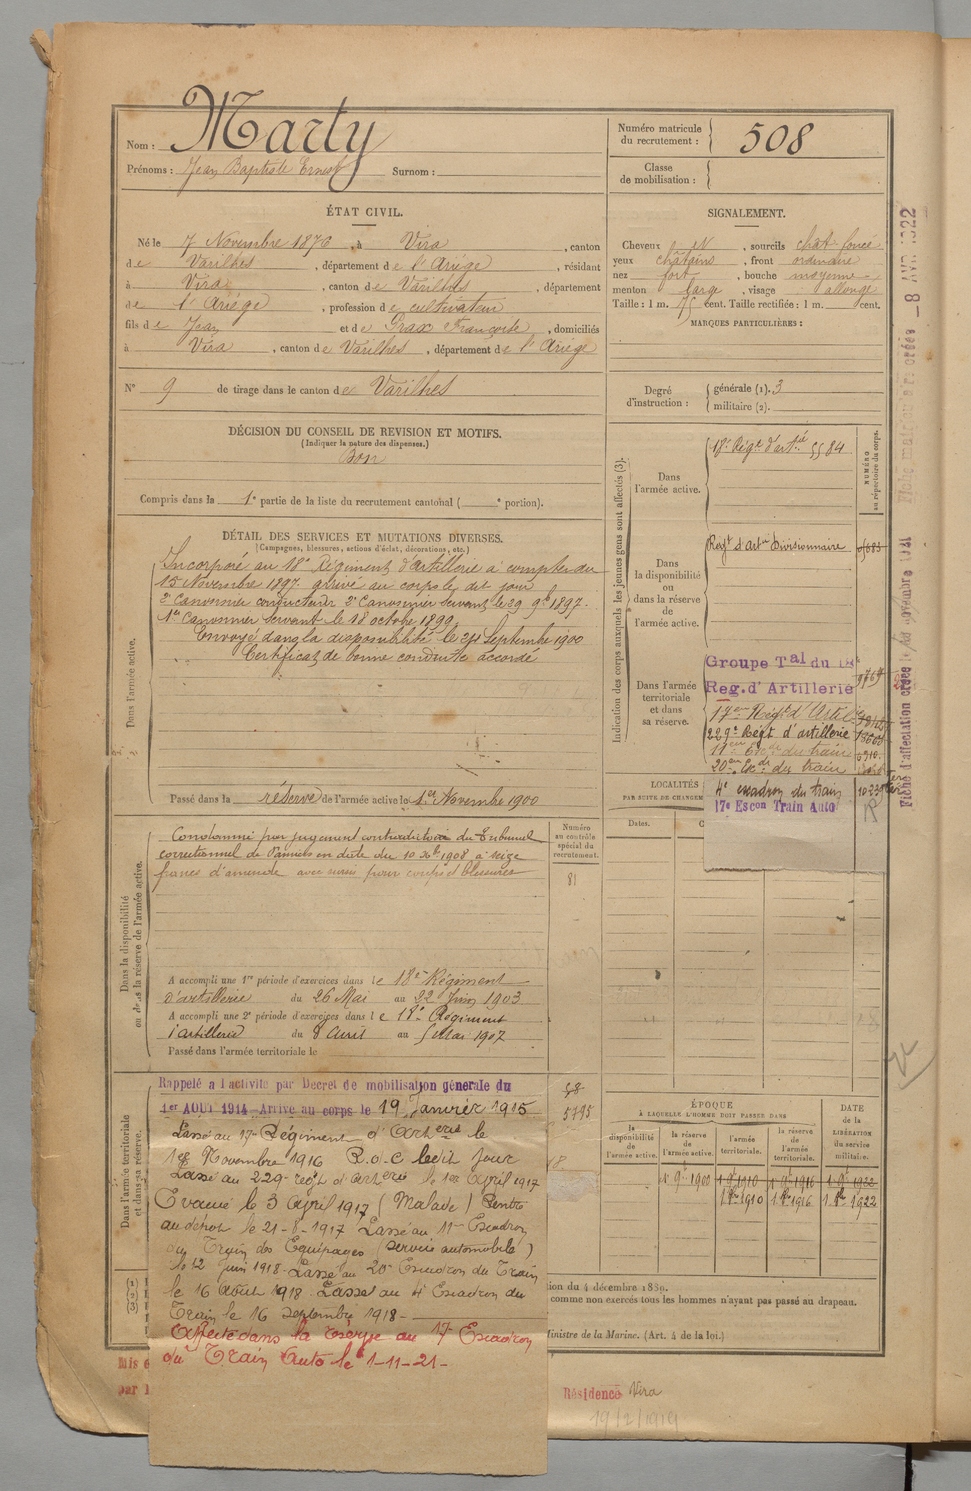 Nom : Marty
Prénoms : Jean Baptiste Ernest Surnom :
Numéro matricule
du recrutement : 508
Classe
de mobilisation :
ÉTAT CIVIL.
Né le 7 Novembre 1876, à Vira, canton
de Varilhes, département de l'Ariège, résidant
à Vira, canton de Varilhes, département
de l'Ariège, profession de cultivateur
fils de Jean et de Grax Françoise, domiciliés
à Vira, canton de Varilhes, département de l'Ariège
SIGNALEMENT.
Cheveux N, sourcils chat. foncé
yeux châtains, front ordinaire
nez fort, bouche moyenne
menton large, visage allongé
Taille : 1 m. 75 cent. Taille rectifiée : 1 m. cent.
MARQUES PARTICULIÈRES :
N° 9 de tirage dans le canton de Varilhes
Degré
d'instruction :
générale (1). 3
militaire (2).
DÉCISION DU CONSEIL DE REVISION ET MOTIFS.
(Indiquer la nature des dispenses.)
Bon
Compris dans la 1e partie de la liste du recrutement cantonal ( e portion).
DÉTAIL DES SERVICES ET MUTATIONS DIVERSES.
(Campagnes, blessures, actions d'éclat, décorations, etc.)
Dans l'armée active.
Incorporé au 18e Régiment d'artillerie à compter du
15 Novembre 1897. arrivé au corps le dit jour
2e Canonnier conducteur 2e Canonnier servant le 29 9bre 1897.
1er Canonnier servant le 18 octobre 1899
Envoyé dans la disponibilité le 24 Septembre 1900
Certificat de bonne conduite accordé
Passé dans la réserve de l'armée active le 1er Novembre 1900
Indication des corps auxquels les jeunes gens sont affectés (3).
NUMÉRO
au répertoire du corps.
Dans
l'armée active.
18e Régt d'artie 5584
Dans
la disponibilité
ou
dans la réserve
de
l'armée active.
Régt d'artie Divisionnaire
Dans l'armée
territoriale
et dans
sa réserve.
Groupe Tal du 18e
Reg. d'Artillerie
17eme Régt d'Artil
229e Régt d'artillerie
11eme Esc. du train
20eme Esc. du train
4e escadron du train
17e Escon Train Auto
LOCALITÉS
PAR SUITE DE CHANGEM
Dates.
Fiche d'affectation créée le novembre 1921
Fiche matriculaire créée -8 AVR 1922
Dans la disponibilité
ou dans la réserve de l'armée active.
Numéro
au contrôle
spécial du
recrutement.
81
Condamné par jugement contradictoire du Tribunal
correctionnel de Pamiers en date du 10 Xbre 1908 à seize
francs d'amende avec sursis pour coups et blessures
A accompli une 1re période d'exercices dans le 18e Régiment
d'artillerie du 26 Mai au 22 Juin 1903
A accompli une 2e période d'exercices dans le 18e Régiment
d'artillerie du 8 Avril au 5 Mai 1907
Passé dans l'armée territoriale le
Dans l'armée territoriale
et dans sa réserve.
Rappelé à l'activité par Decret de mobilisation génerale du
1er AOUT 1914 Arrive au corps le 19 Janvier 1915
Passé au 17e Régiment d'Artrie le
1er Novembre 1916 R.d.C. ledit jour
Passé au 229e régt d'artrie le 1er Avril 1917
Evacué le 3 Avril 1917 (Malade) Rentré
au dépôt le 21-8-1917 Passé au 11e Escadron
du Train des Equipages (service automobile)
le 12 Juin 1918. Passé au 20e Escadron du Train
le 16 Août 1918. Passé au 4e Escadron du
Train le 16 septembre 1918
Affecté dans la réserve au 17e Escadron
du Train Auto le 1-11-21-
58
5795
ÉPOQUE
À LAQUELLE L'HOMME DOIT PASSER DANS
DATE
de la
LIBÉRATION
du service
militaire.
la
disponibilité
de
l'armée active.
la réserve
de
l'armée active.
l'armée
territoriale.
la réserve
de
l'armée
territoriale.
1er 9bre 1900 1 9bre 1910 1 9bre 1916 1 9bre 1922
1 9bre 1910 1 9bre 1916 1 9bre 1922
(1)
(2)
(3)
tion du 4 décembre 1889.
comme non exercés tous les hommes n'ayant pas passé au drapeau.
Ministre de la Marine. (Art. 4 de la loi.)
Mis e
par l
Résidence Vira
19/2/1919